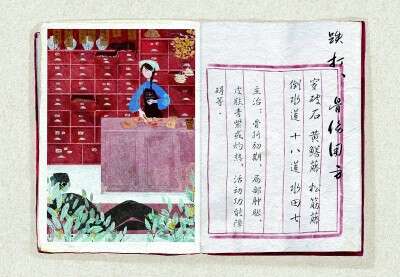 跌打、骨伤用方
穿破石 黄鳝藤 松筋藤
倒水道 十八道 水田七
主治：骨折初期 局部肿胀、
皮肤青紫或灼热、活动功能障
碍等。